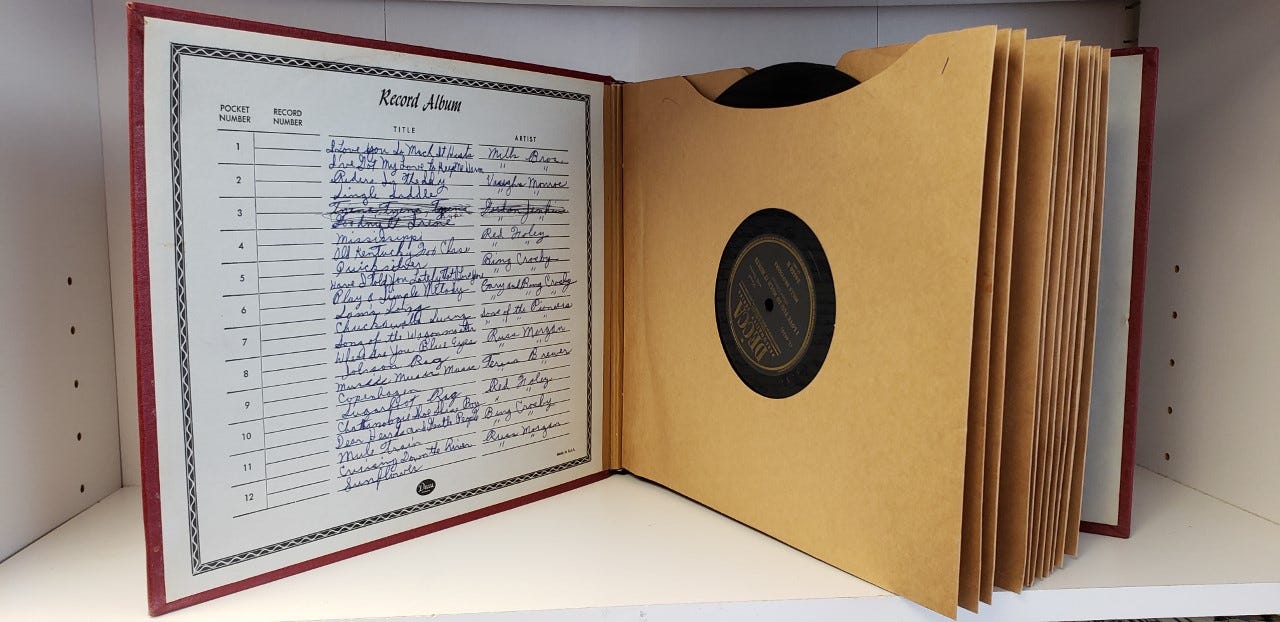 Record Album
POCKET NUMBER RECORD NUMBER TITLE ARTIST
1 I Love You So Much It Hurts Mills Bros.
I've Got My Love to Keep Me Warm " "
2 Riders In The Sky Vaughn Monroe
Single Saddle " "
3 Gordon Jenkins
" "
4 Mississippi Red Foley
Old Kentucky Fox Chase " "
5 Quicksilver Bing Crosby
Have I Told You Lately that I Love You " "
6 Play a Simple Melody Gary and Bing Crosby
Sam's Song " "
7 Chuckawalla Swing Sons of the Pioneers
Song of the Wagonmaster " "
8 Where Are You Blue Eyes Russ Morgan
Johnson Rag " "
9 Music Music Music Teresa Brewer
Copenhagen " "
10 Sugarfoot Rag Red Foley
Chattanoogie Shoe Shine Boy " "
11 Dear Hearts and Gentle People Bing Crosby
Mule Train " "
12 Cruising Down the River Russ Morgan
Sunflower " "
Decca
MADE IN U.S.A.
1
DECCA